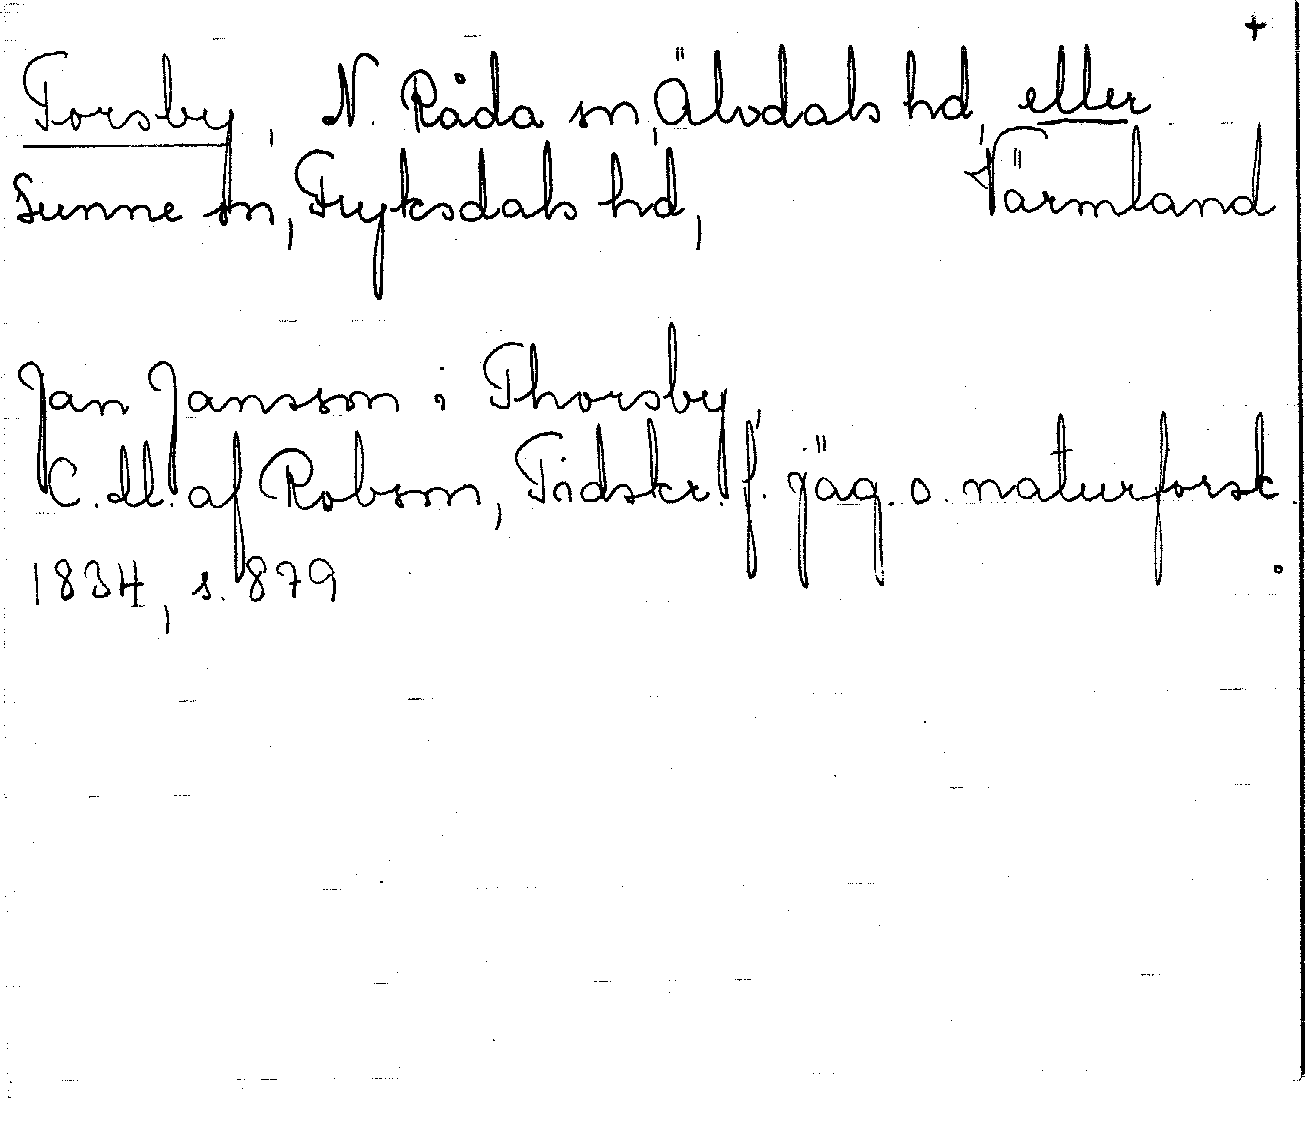 +
Torsby, N. Råda sn, Älvdals hd, eller
Sunne sn, Fryksdals hd, Värmland
Jan Jansson i Thorsby,
C. M. af Robson, Tidskr. f. jäg. o. naturforsk.
1834, s. 879